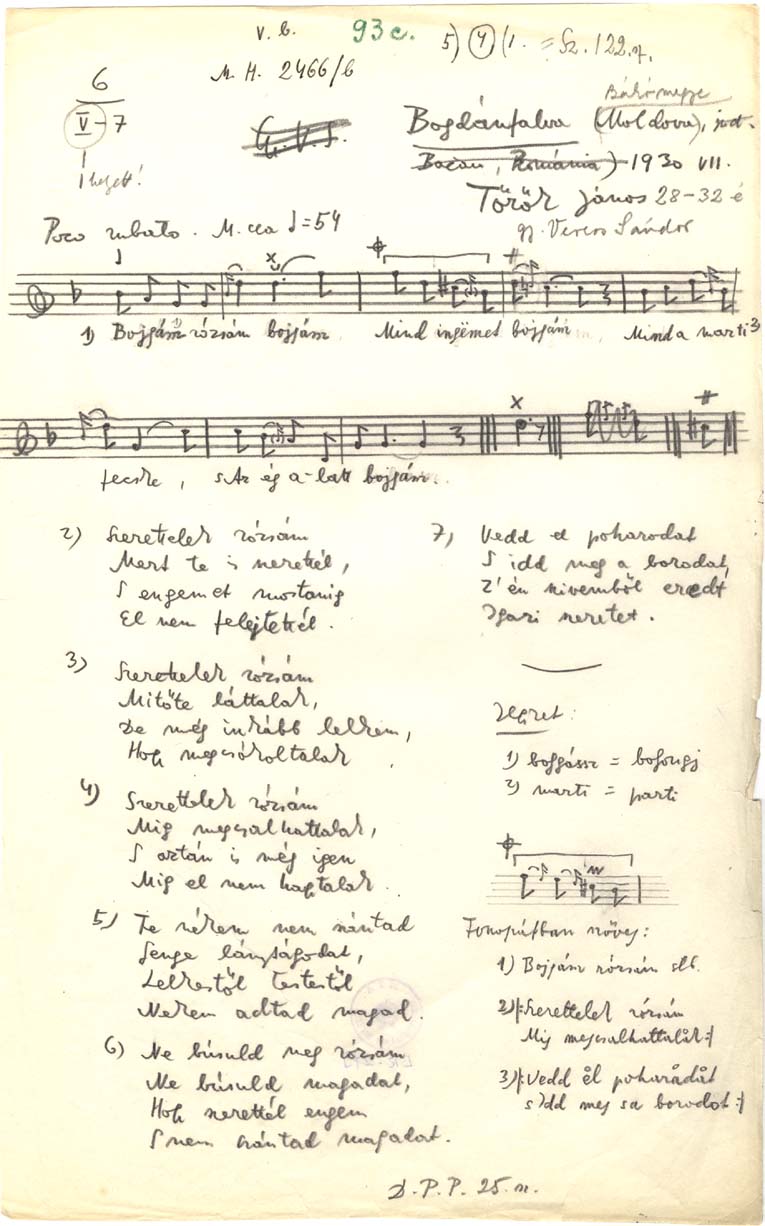 V. b. 93c. 5) 4 (1. = Sz. 122.7.
M. H. 2466/b
6
V-7
1 helyett!
Bákó megye
Bogdánfalva (Moldova), jud.
Bacau, Románia) 1930 VII.
Török János 28-32 é
gy. Veress Sándor
Poco rubato. M. cca ♩=54
1) Bojgássz rózsám bojgássz Mind ingëmet bojgássz, Mind a marti
fecske, s Az ég a-latt bojgássz.
2) Szerettelek rózsám
Mert te is szerettél,
S engemet mostanig
El nem felejtettél.
3) Szerettelek rózsám
Mitőte láttalak,
De még inkább lelkem,
Hogy megcsókoltalak.
4) Szerettelek rózsám
Míg megcsalhattalak,
S aztán is még igen
Míg el nem hagytalak.
5) Te nékem nem szántad
Genge lányságodat,
Lelkestől testestől
Nekem adtad magad.
6) Ne búsuld meg rózsám
Ne búsuld magadat,
Hogy szerettél engem
S nem szántad magadat.
7) Vedd el poharodat
S idd meg a borodat,
Z'én szivemből eredt
Igazi szeretet.
1) bojgássz = bojongj
2) marti = parti
Fonográfban szöveg:
1) Bojgássz rózsám stb.
2) |: Szerettelek rózsám
Míg megcsalhattalåk :|
3) |: Vedd ål poharådåt
s Idd meg sa borodot :|
D. P. P. 25. sz.